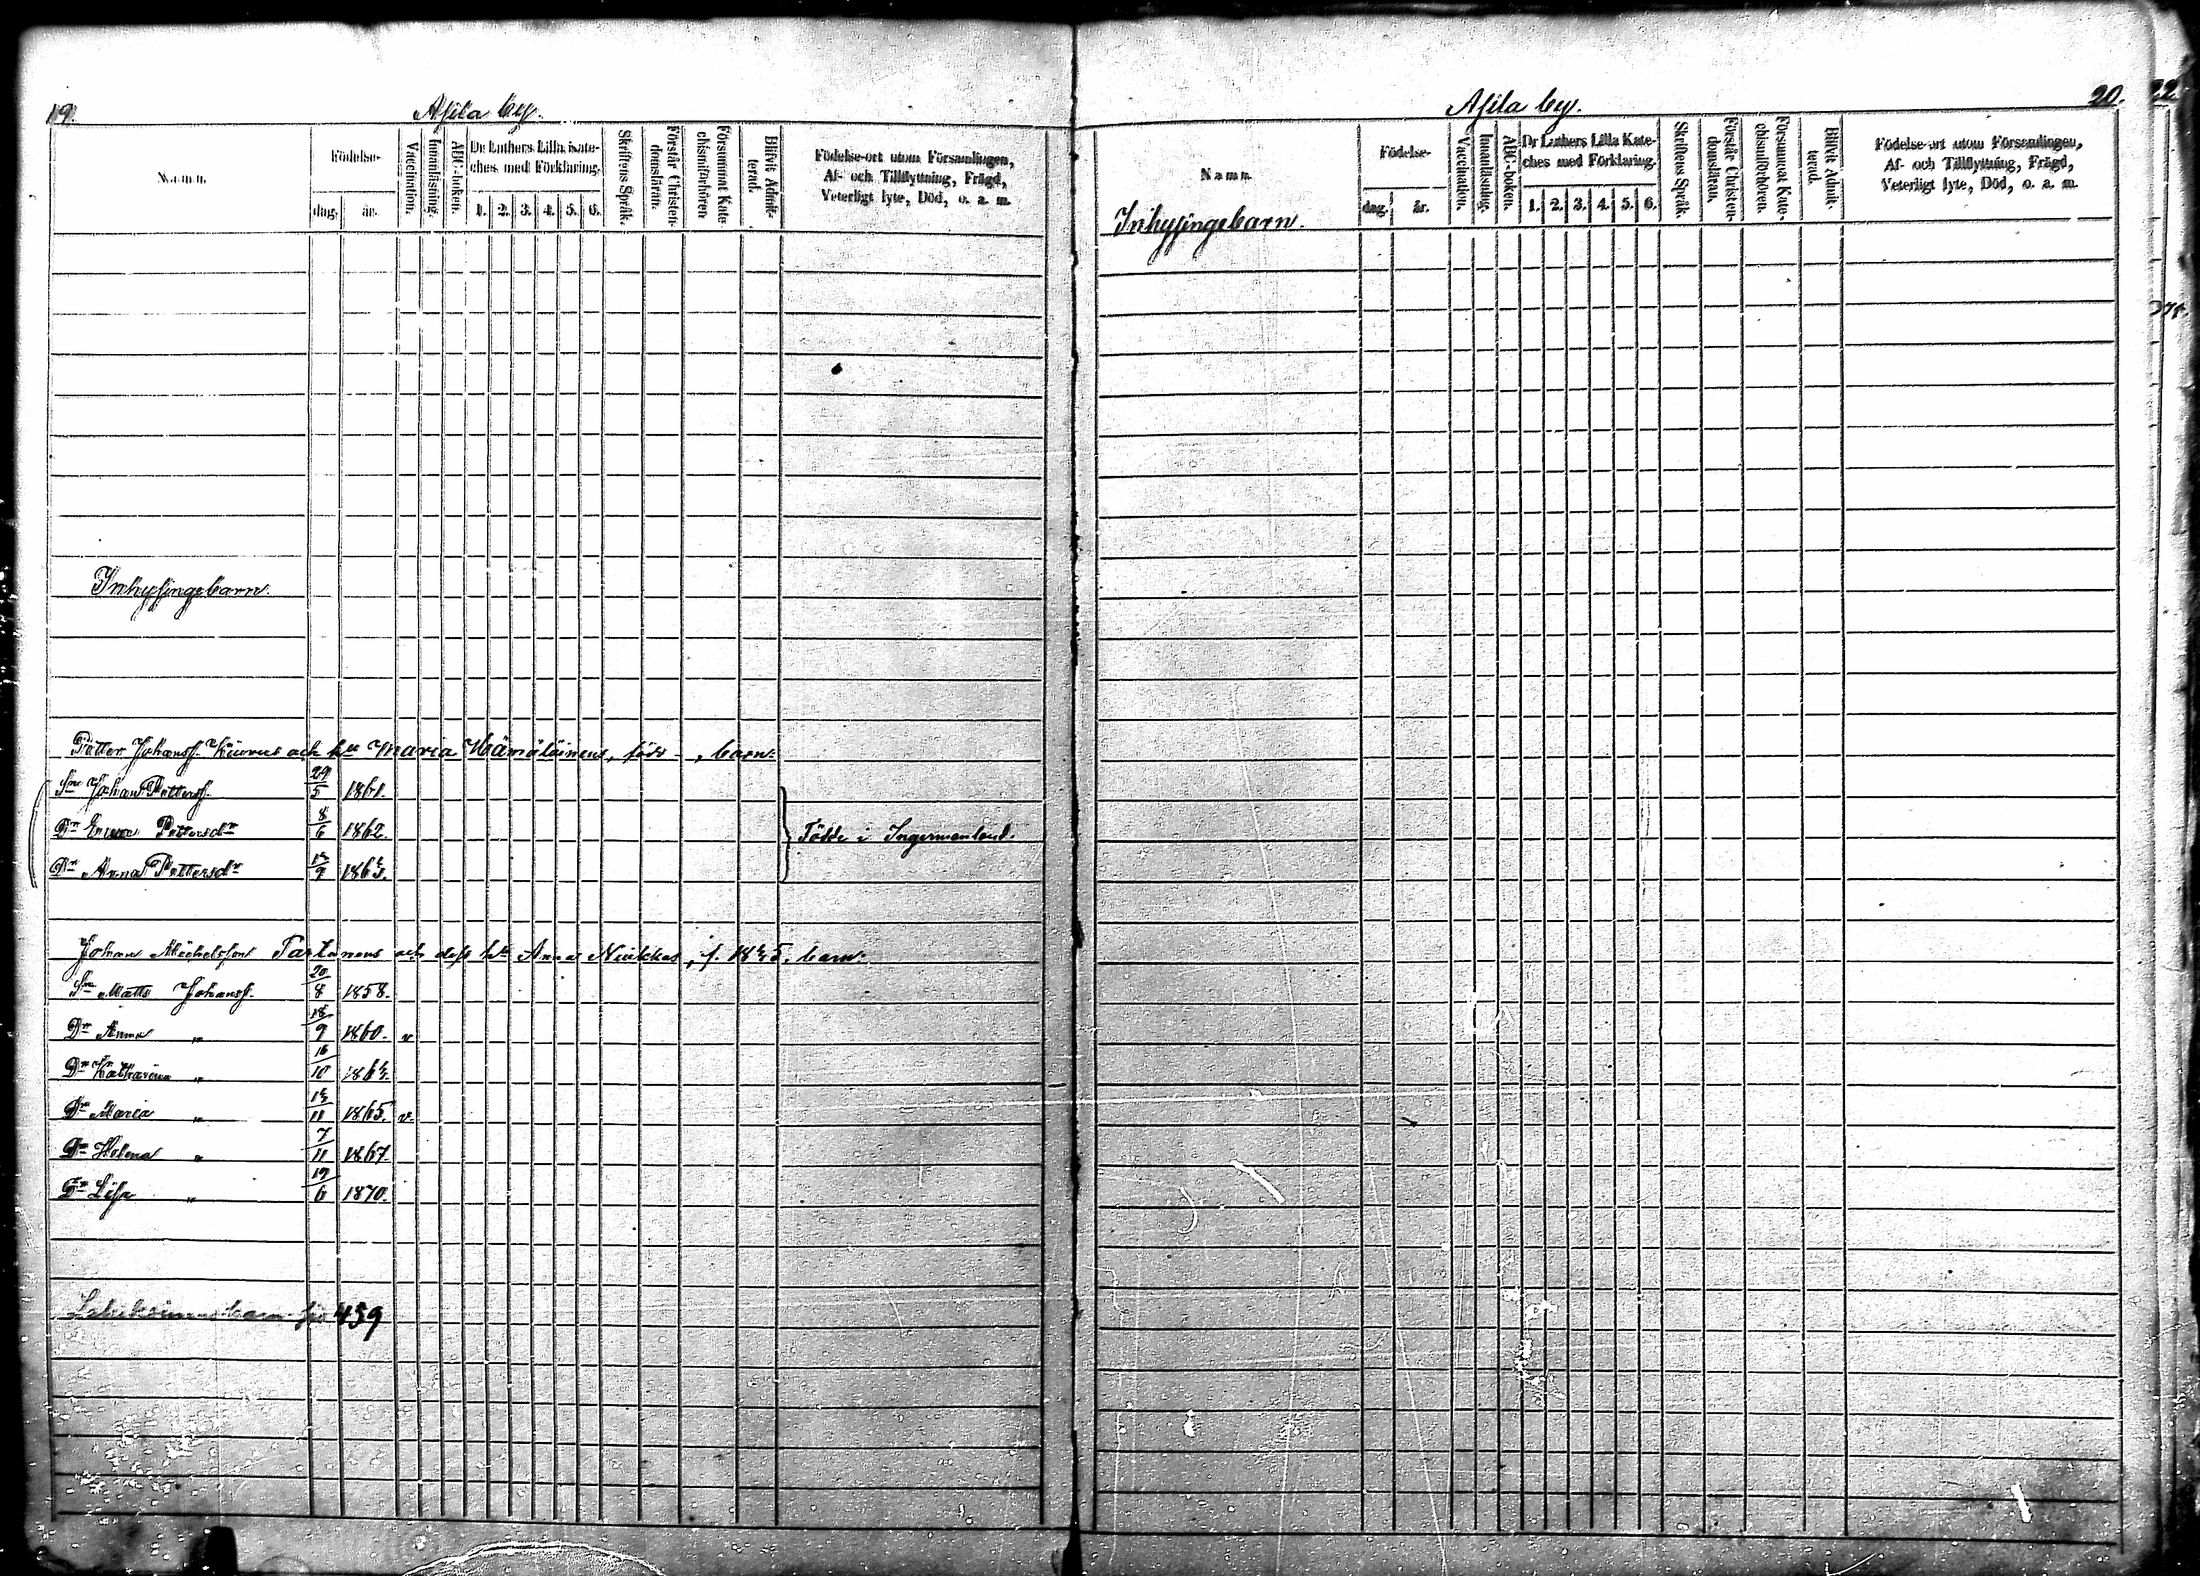 19.
Asila by.
Namn.
Födelse-
dag.
år.
Vaccination.
Innanläsning.
ABC-boken.
Dr Luthers Lilla Kate-
ches med Förklaring.
1. 2. 3. 4. 5. 6.
Skriftens Språk.
Förstår Christen-
domsläran.
Försummat Kate-
chismiförhören.
Blifvit Admit-
terad.
Födelse-ort utom Församlingen,
Af- och Tillflyttning, Frägd,
Veterligt lyte, Död, o. a. m.
Inhysingebarn.
Petter Johanss. Kiurus och hu Maria Hämäläinen, född - , barn:
Sn Johan Petterss. 29/5 1861.
Dr Petersdr 8/6 1862.
Födde i Ingermanland.
Dr Anna Pettersdr /9 1863.
Johan Michelsson Tartanens och dess hu Anna Niukkas, f. 1835. barn:
Sn Matts Johanss. 20/8 1858.
Dr Anna " 18/9 1860. v
Dr Katharina " 16/10 1863.
Dr Maria " 13/11 1865. v.
Dr Helena " 7/11 1867.
Dr Lisa " 19/6 1870.
barn 439
20.
Asila by.
Namn.
Födelse-
dag.
år.
Vaccination.
Innanläsning.
ABC-boken.
Dr Luthers Lilla Kate-
ches med Förklaring.
1. 2. 3. 4. 5. 6.
Skriftens Språk.
Förstår Christen-
domsläran.
Försummat Kate-
chismiförhören.
Blifvit Admit-
terad.
Födelse-ort utom Församlingen,
Af- och Tillflyttning, Frägd,
Veterligt lyte, Död, o. a. m.
Inhysingebarn.
22